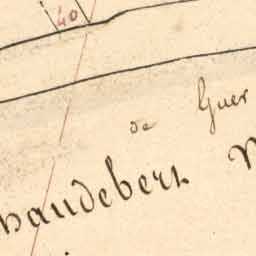 40
de Guer
handebert